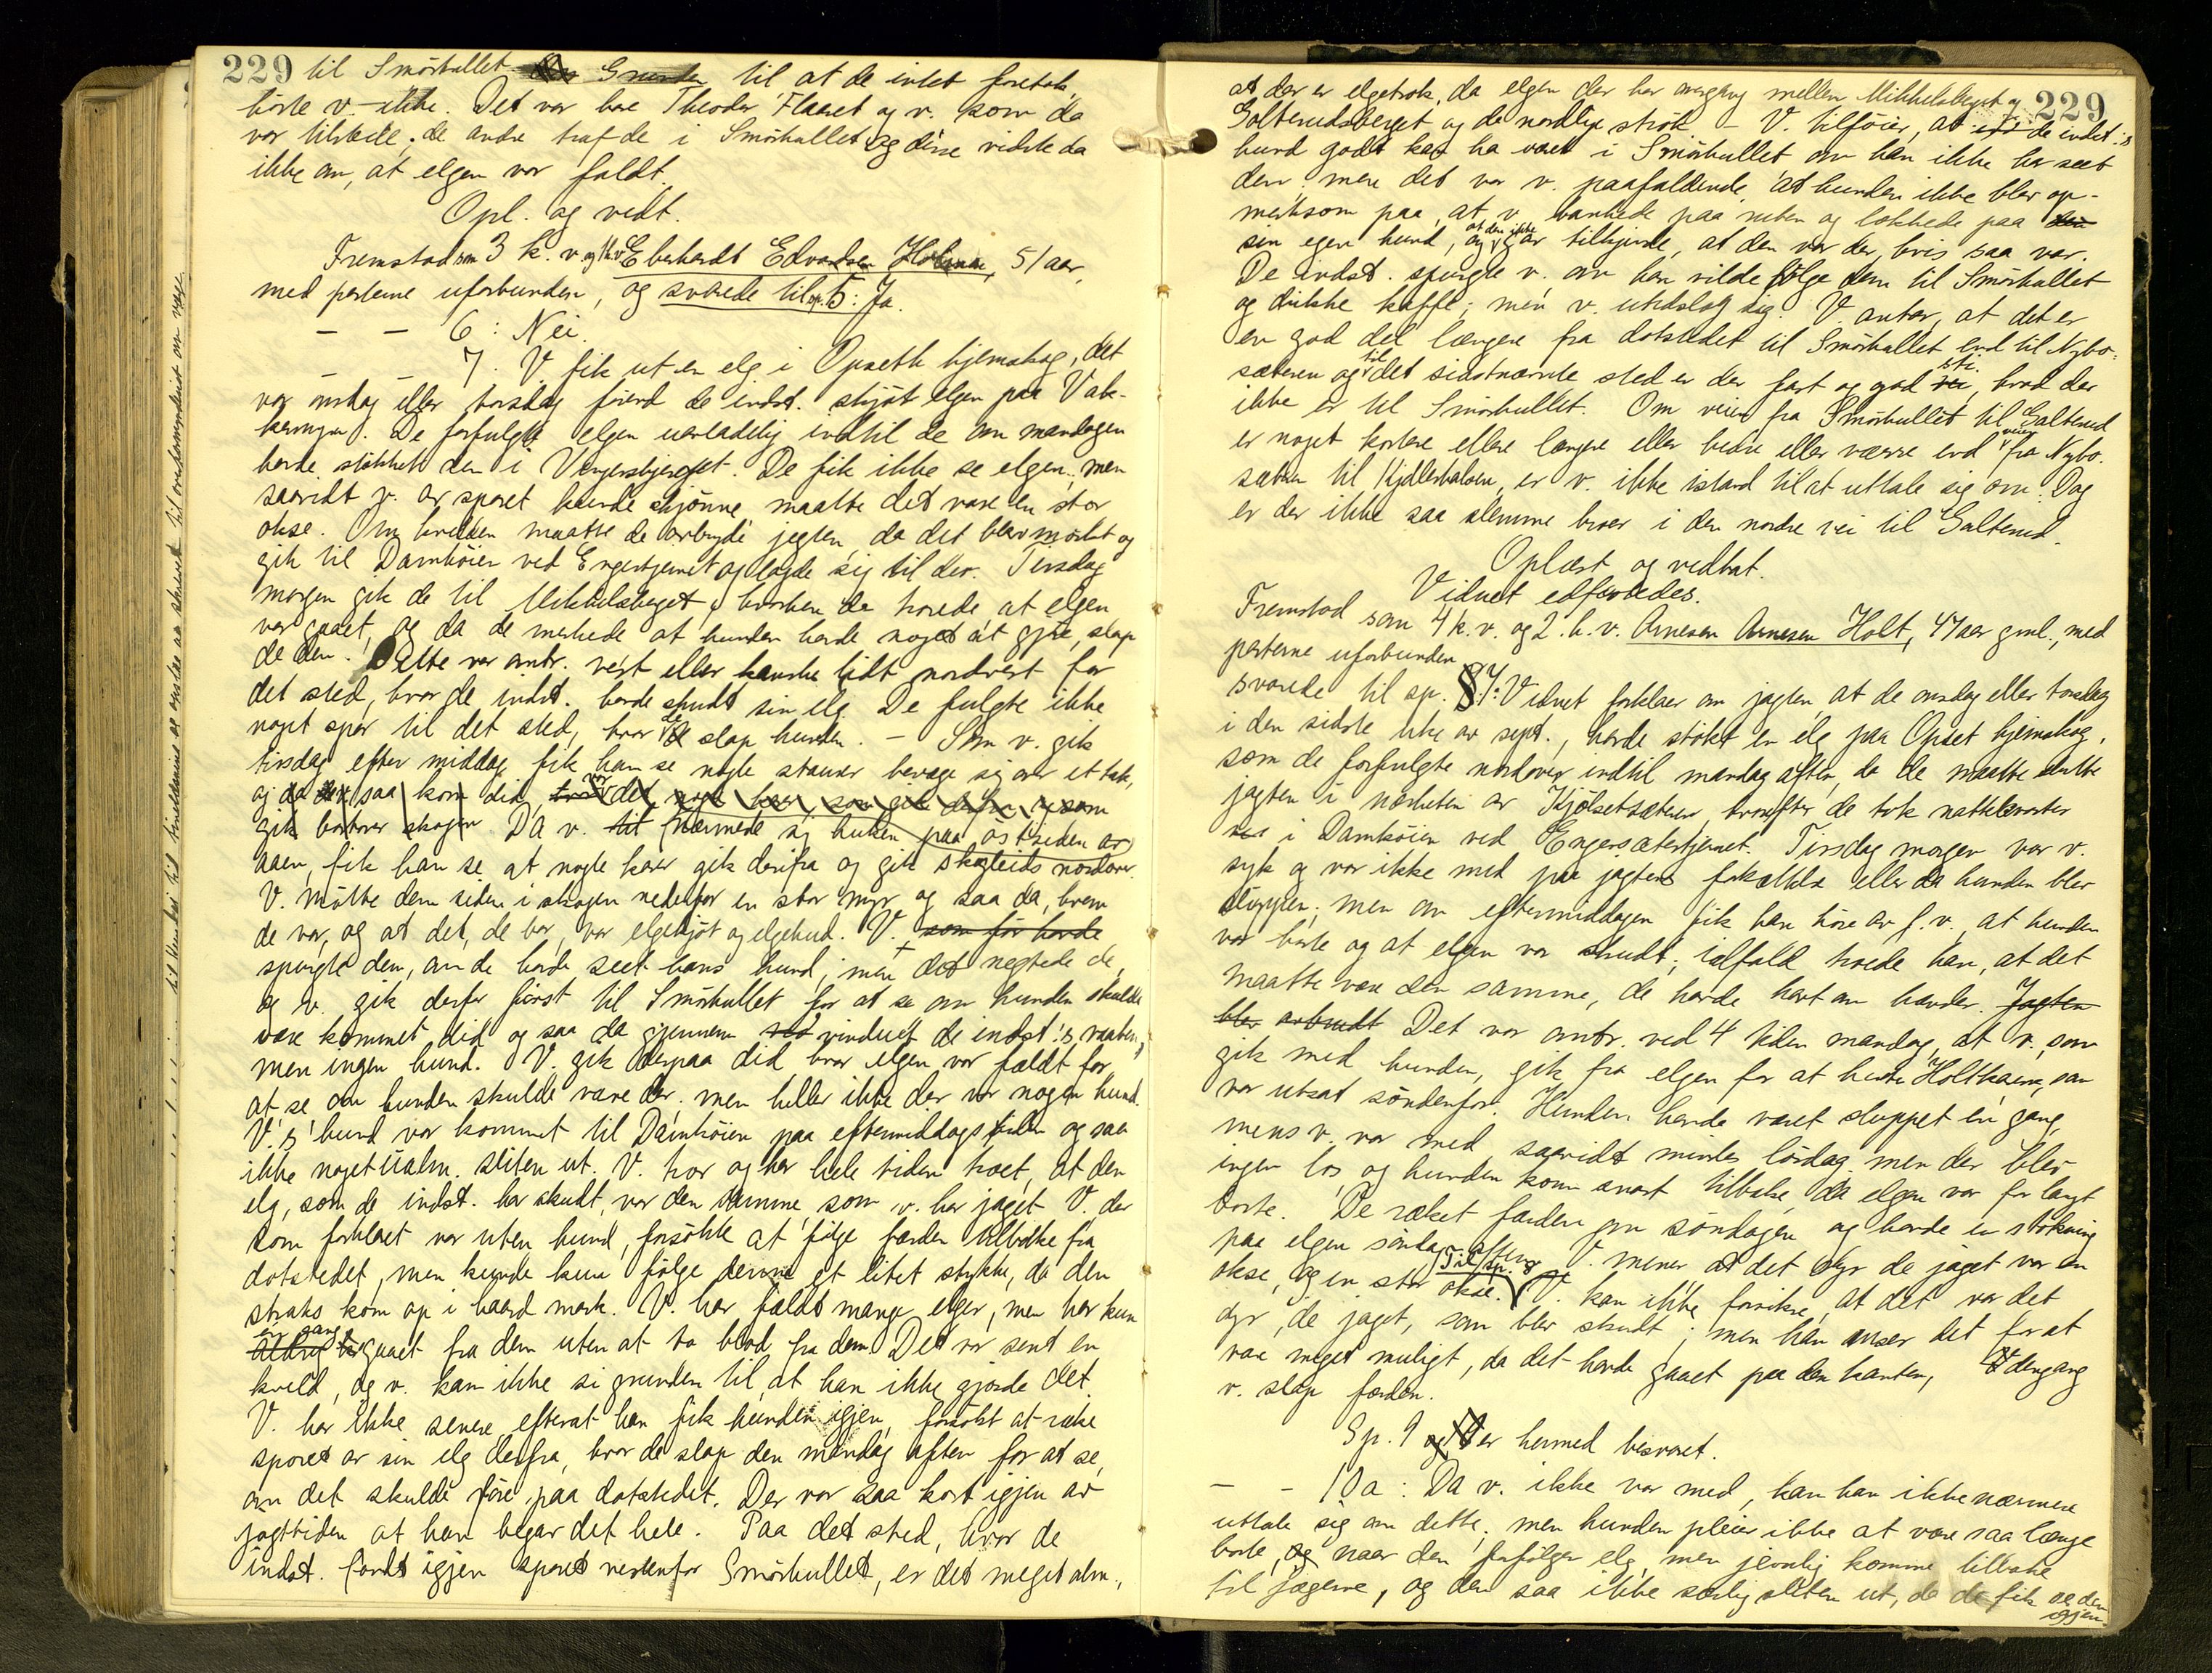 229 til Smörhullet Grunden til at de intet foretok,
hörte v. ikke. Det var bare Theodor Flaaet og v. som da
var tilstede; de andre traf de i Smörhullet og disse vidste da
ikke om, at elgen var faldt.
Opl. og vedt.
Fremstod som 3 k. v. og 1 h.v. Eberhardt Edvardsen 51 aar,
med parterne uforbunden, og svarede til sp. 5: Ja.
— — 6: Nei.
— — 7. V fik ut en elg i Opseth hjemskog, det
var onsdag eller torsdag förend de indst. skjöt elgen paa Vake-
De forfulgte elgen uavladelig indtil de om mandagen
havde stökket den i De fik ikke se elgen, men
saavidt v. av sporet kunde skjönne maatte det være en stor
okse. Om kvelden maatte de avbryde jagten, da det blev mörkt og
gik til Damköien ved Engertjernet og lagde sig til der. Tirsdag
morgen gik de til Mikkelsberget, hvorhen de troede at elgen
var gaaet, og da de merkede at hunden havde noget at gjöre, slap
de den. Dette var omtr. vest eller kanske lidt nordvest for
det sted, hvor de indst. havde skudt sin elg. De fulgte ikke
noget spor til det sted, hvor de slap hunden. — Som v. gik
tirsdag efter middag fik han se nogle stauer bevæge sig over et tak,
og da saa kom did, var det nogle karer, som gik derfra og som
gik bortover skogen Da v. tit nærmede sig buken paa östsiden av
aaen, fik han se, at nogle karer gik derifra og gik skogleids nordover.
V. mötte dem siden i skogen nedenfor en stor myr og saa da, hvem
de var, og at det, de bar, var elgekjöt og elgehud. V. som för havde
spurgte dem, om de havde seet hans hund, men det negtede de,
og v. gik derfor först til Smörhullet for at se om hunden skulde
være kommet did og saa da gjennem vinduet de indst.'s vaaben,
men ingen hund. V. gik derpaa did, hvor elgen var fældt for
at se, om hunden skulde være der, men heller ikke der var nogen hund.
V.'s hund var kommet til Damköien paa eftermiddagstiden og saa
ikke noget ualm. sliten ut. V. tror og har hele tiden troet, at den
elg, som de indst. har skudt, var den samme, som v. har jaget. V. der
som forklaret var uten hund, forsökte at fölge færden tilbake fra
dotstedet, men kunde kun fölge denne et litet stykke, da den
straks kom op i haard mark. V. har fældt mange elger, men har kun
en gang
aldrig har gaaet fra dem uten at ta blod fra dem. Det var sent en
kveld, og v. kan ikke si grunden til, at han ikke gjorde det.
V. har ikke senere, efterat han fik hunden igjen, forsökt at rake
sporet av sin elg derfra, hvor de slap den mandag aften for at se,
om det skulde före paa dotstedet. Der var saa kort igjen av
jagttiden at han begav det hele. Paa det sted, hvor de
indst. fandt igjen sporet nordenfor Smörhullet, er det meget alm.,
229
at der er elgetrak, da elgen der har overgang mellem Mikkelsberget og
Galterudsberget og de nordlige strök — V. tilföier, at de indst.'s
hund godt kan ha været i Smörhullet om han ikke har seet
den; men det var v. paafaldende, at hunden ikke blev op-
merksom paa, at v. bankede paa ruten og lokkede paa den
sin egen hund, og at den ikke gav tilkjende, at den var der, hvis saa var.
De indst. spurgte v. om han vilde fölge dem til Smörhullet
og drikke kaffe; men v. undslog sig. V. antar, at det er
en god del længere fra dotstedet til Smörhullet end til Nybo-
sæteren og til det sidstnævnte sted er der fast og god sti, hvad der
ikke er til Smörhullet. Om veien fra Smörhullet til Galterud
er noget kortere eller længre eller bedre eller værre end veien fra Nybo-
sæteren til er v. ikke istand til at uttale sig om. Dog
er der ikke saa slemme broer i den nordre vei til Galterud.
Oplæst og vedtat.
Vidnet edfæstedes.
Fremstod som 4 k.v. og 2. h.v. Arnesen Holt, 47 aar gml., med
parterne uforbunden
svarede til sp. 7: Vidnet forklarer om jagten, at de onsdag eller torsdag
i den sidste uke av sept., havde stökt en elg paa Opset hjemskog,
som de forfulgte nordover indtil mandag aften, da de maatte slutte
jagten i nærheten av Kjölsetsæteren, hvorefter de tok nattekvarter
i Damköien ved Engersætertjernet. Tirsdag morgen var v.
syk og var ikke med paa jagtens fortsettelse eller da hunden blev
sluppen; men om eftermiddagen fik han höre av f.v., at hunden
var borte og at elgen var skudt; ialfald troede han, at det
maatte være den samme, de havde hart om hænder. Jagten
blev avbrudt Det var omtr. ved 4 tiden mandag, at v., som
gik med hunden, gik fra elgen for at hente Holtkaren, som
var utsat söndenfor. Hunden havde været sluppet en gang,
mens v. var med saavidt mindes lördag, men der blev
ingen los og hunden kom snart tilbake, da elgen var for langt
borte. De raket færden om söndagen og havde en stökning
paa elgen söndag aften. V. mener at det dyr de jaget var en
okse, og en stor okse. Til sp. 8 V. kan ikke forsikre, at det var det
dyr, de jaget, som blev skudt; men han anser det for at
være meget muligt, da det havde gaaet paa den kanten, dengang
v. slap færden.
Sp. 9 er hermed besvaret.
— — 10 a: Da v. ikke var med, kan han ikke nærmere
uttale sig om dette; men hunden pleier ikke at være saa længe
borte, naar den forfölger elg, men jevnlig komme tilbake
til jægerne, og den saa ikke særlig sliten ut, da de fik se den
igjen